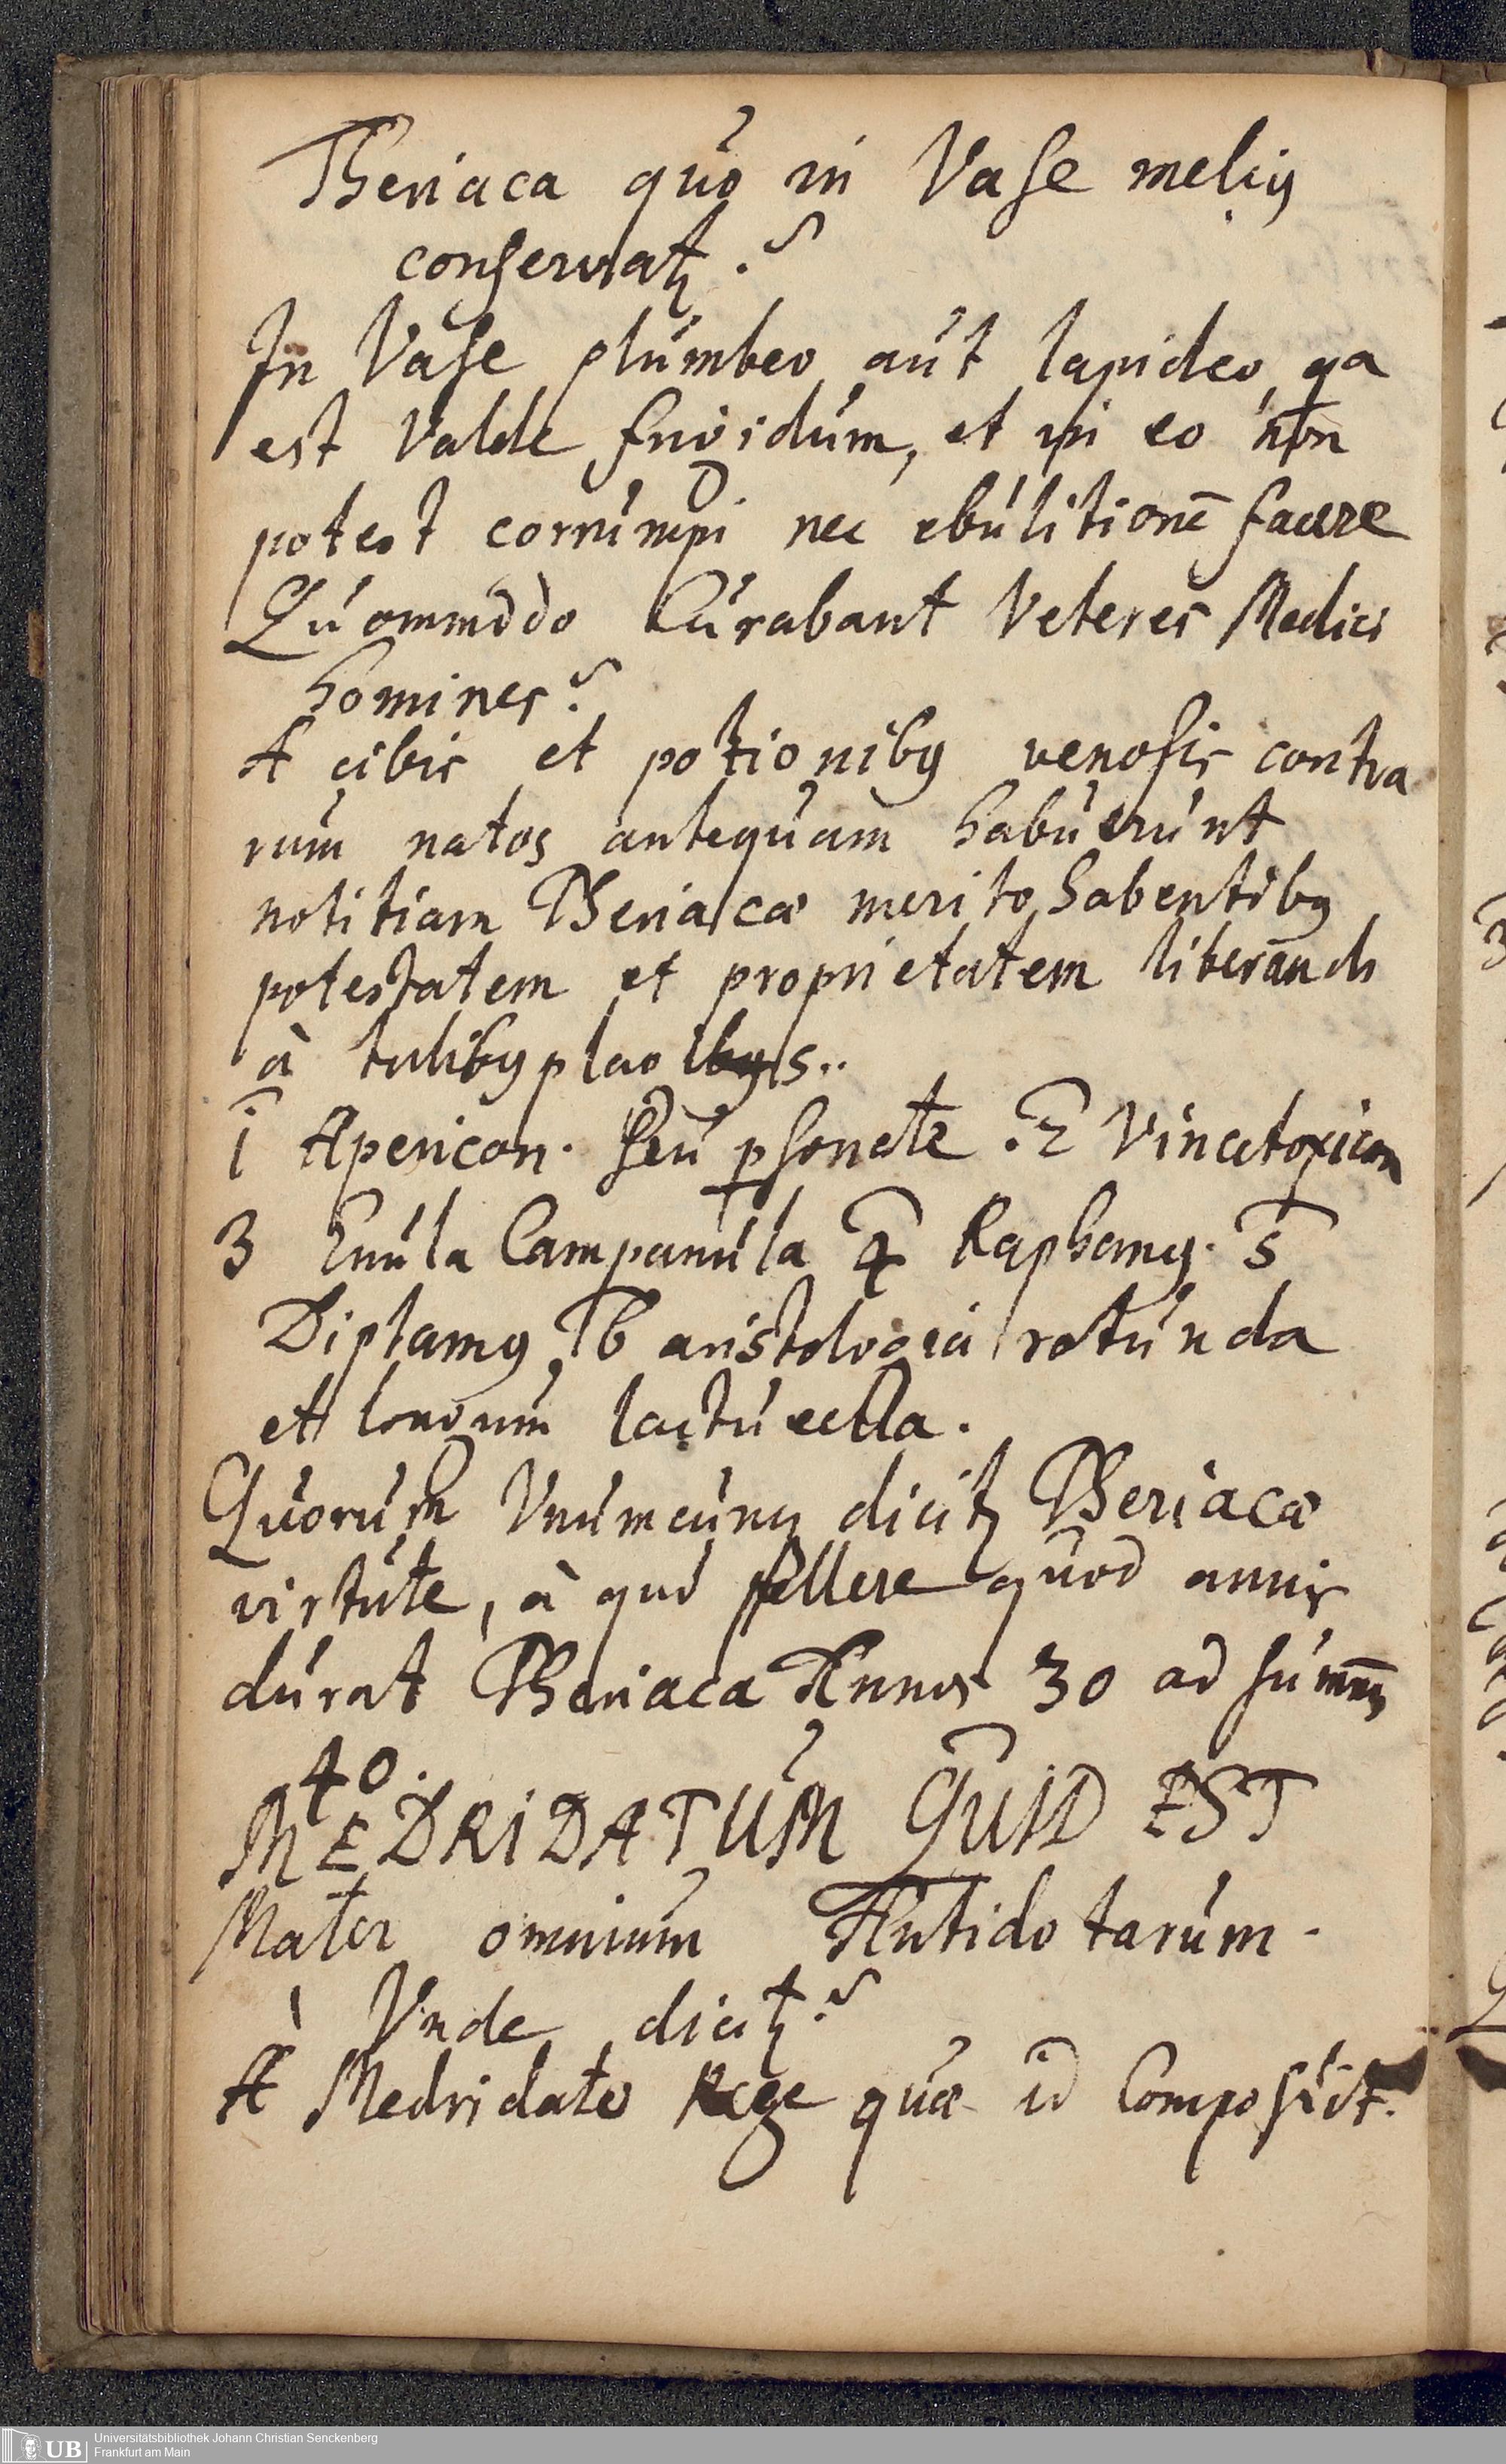 Theriaca quo in Vase meliꝰ
conservatꝫ.?
In Vase plumbeo aut lapideo, qa
est Valde frigidum, et in eo non
potest corrumpi nec ebulitionē facere
Quommodo Curabant Veteres Medici
homines?
A cibis et potionibꝰ venosis contra
rum natos antequam habuerunt
notitiam Theriacæ merito habentibꝰ
potestatem et proprietatem liberandi
à talibꝰ plagis..
1 Apericon. seu ꝑsonate. 2 Vincetoxicon
3 Enula Campanula 4 Raphanꝰ. 5
Diptamꝰ 6 aristologia rotunda
et longum lactucella.
Quorum Unumcunq dicitꝫ Theriacæ
virtute, à quo pellere quod annis
durat Theriaca Annos 30 ad summꝰ
40.
MEDRIDATUM QUID EST
Mater omnium Antidotarum.
Unde dicitꝫ?
A Medridato Rege qua id Composuit.
Universitätsbibliothek Johann Christian Senckenberg
Frankfurt am Main
UB